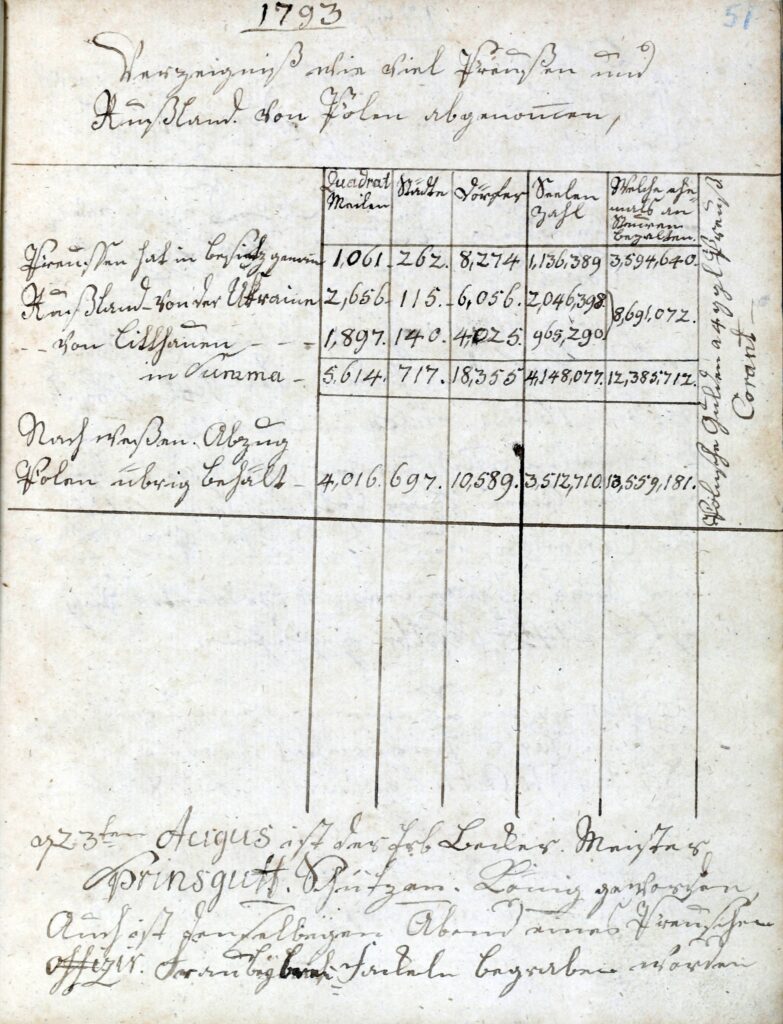 1793
51
Verzeigniß wie viel Preußen und
Rußland. von Polen abgenommen,
Quadrat Meilen Städte Dörfer Seelen Zahl Welche ehe= mals an Steuren bezalten.
Preussen hat in besitz genomn 1,061. 262. 8,274 1,136,389 3,594,640.
Rußland von der Ukraine 2,656. 115. 6,056. 2,046,398 8,691,072.
- - von Litthauen - - - 1,897. 140. 4,025. 965,290
in Summa - 5,614. 717. 18,355 4,148,077. 12,385,712.
Nach dießen. Abzug
Polen übrig behält - 4,016. 697. 10,589. 3,512,710. 13,559,181.
Polnische Gulden a 4 ggl Preuß
Corant
23ten Augus ist der Erb Becker. Meister
Prinsgutt. Schützen. König geworden
Auch ist denselbigen Abend eines Preuschen
offizir. Frau bey Fackeln begraben worden